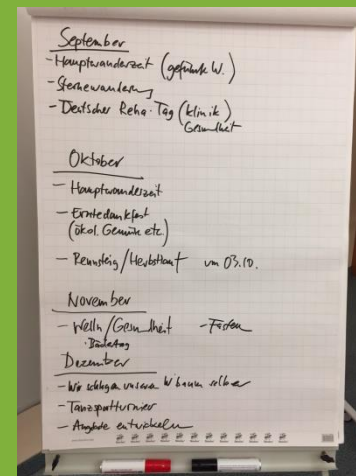 September
- Hauptwanderzeit (geführte W.)
- Sternewanderung
- Deutscher Reha-Tag (Klinik)
Gesundheit
Oktober
- Hauptwanderzeit
- Erntedankfest
(ökol. Gemüse etc.)
- Rennsteig/Herbstlauf um 03.10.
November
- Welln/Gesundheit - Fasten
Dezember
- Wir schlagen unseren W baum selber
- Tanzsportturnier
- Angebote entwickeln